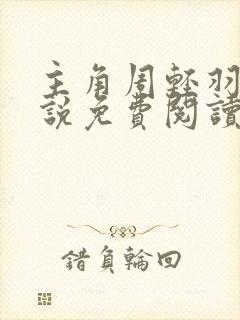 主角周輕羽
說免費閱讀
錯負輪回